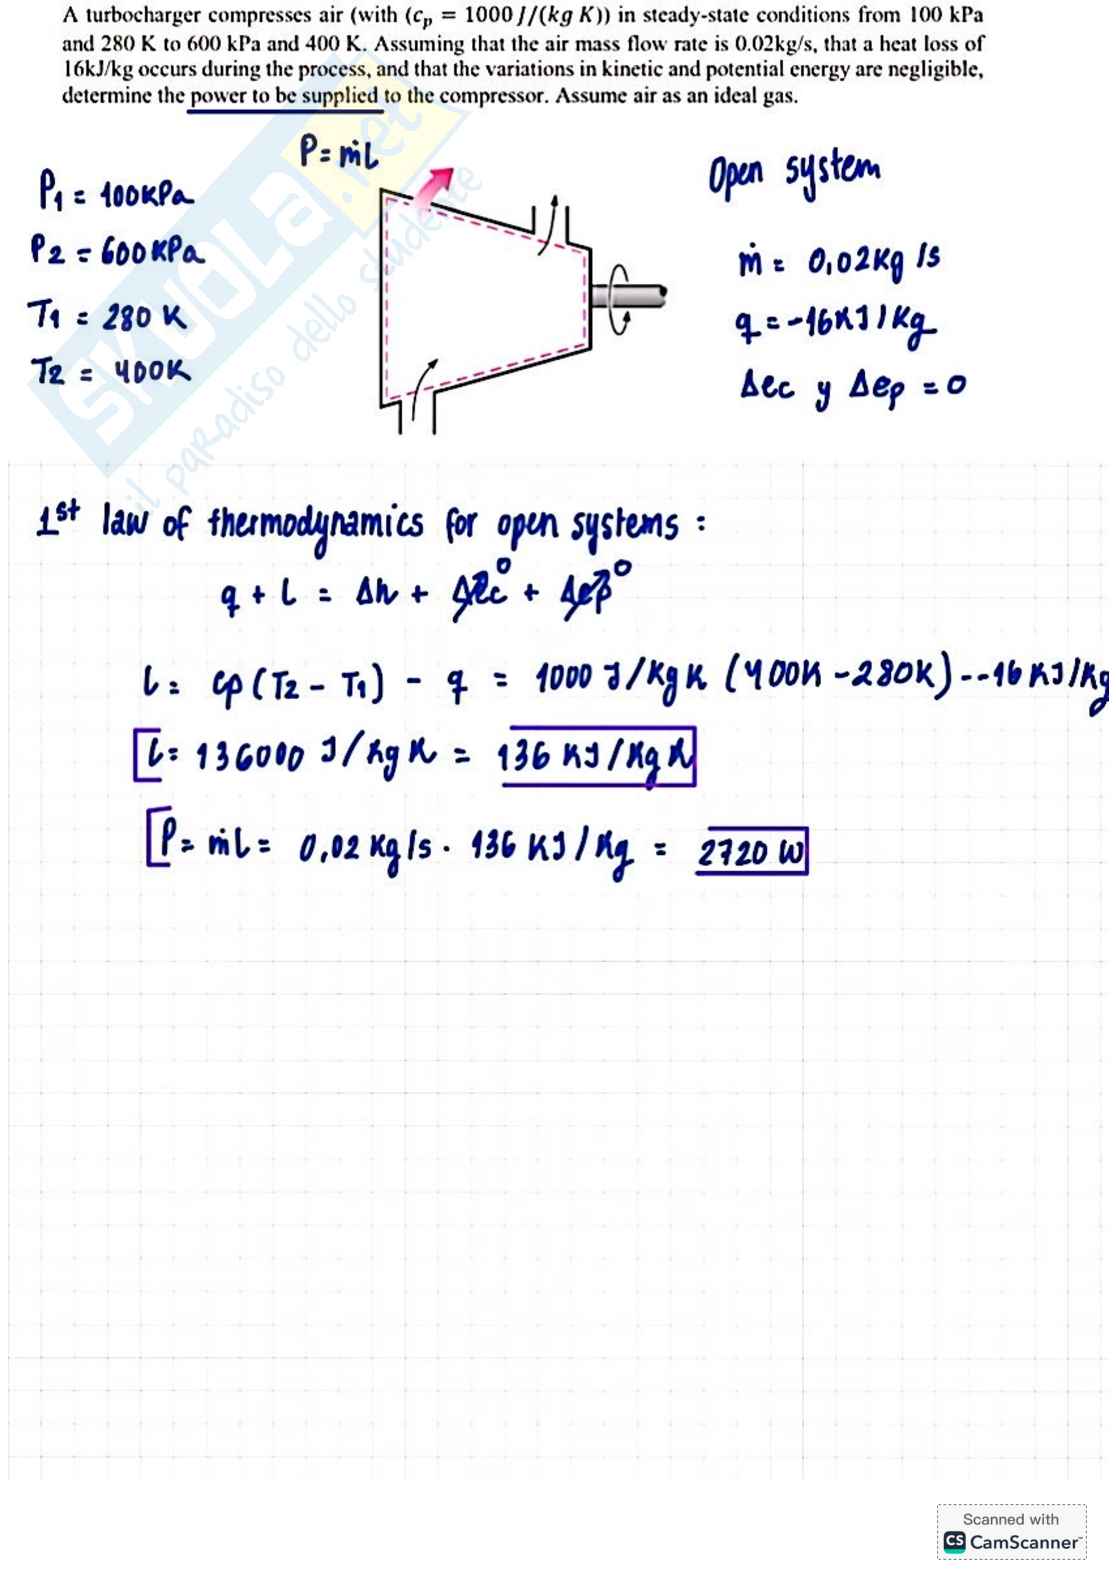 A turbocharger compresses air (with (cp = 1000 J/(kg K)) in steady-state conditions from 100 kPa
and 280 K to 600 kPa and 400 K. Assuming that the air mass flow rate is 0.02kg/s, that a heat loss of
16kJ/kg occurs during the process, and that the variations in kinetic and potential energy are negligible,
determine the power to be supplied to the compressor. Assume air as an ideal gas.
P = ṁL
P1 = 100KPa
P2 = 600KPa
T1 = 280 K
T2 = 400K
Open system
ṁ = 0,02Kg/s
q = -16KJ/Kg
Δec y Δep = 0
SKUOLA.net
il paradiso dello studente
1st law of thermodynamics for open systems:
q + L = Δh + Δec⁰ + Δep⁰
L = cp(T2 - T1) - q = 1000 J/KgK (400K - 280K) - -16 KJ/Kg
L = 136000 J/KgK = 136 KJ/KgK
P = ṁL = 0,02 Kg/s · 136 KJ/Kg = 2720 W
Scanned with
CS CamScanner